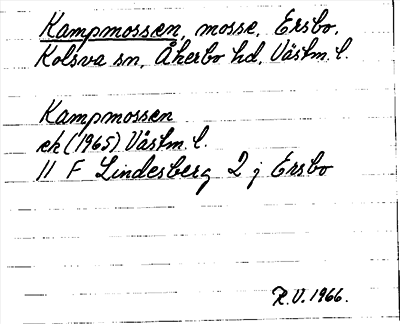 Kampmossen, mosse, Ersbo,
Kolsva sn, Åkerbo hd, Västm. l.
Kampmossen
ek (1965) Västm. l.
11 F Lindesberg 2 j Ersbo
R.V. 1966.